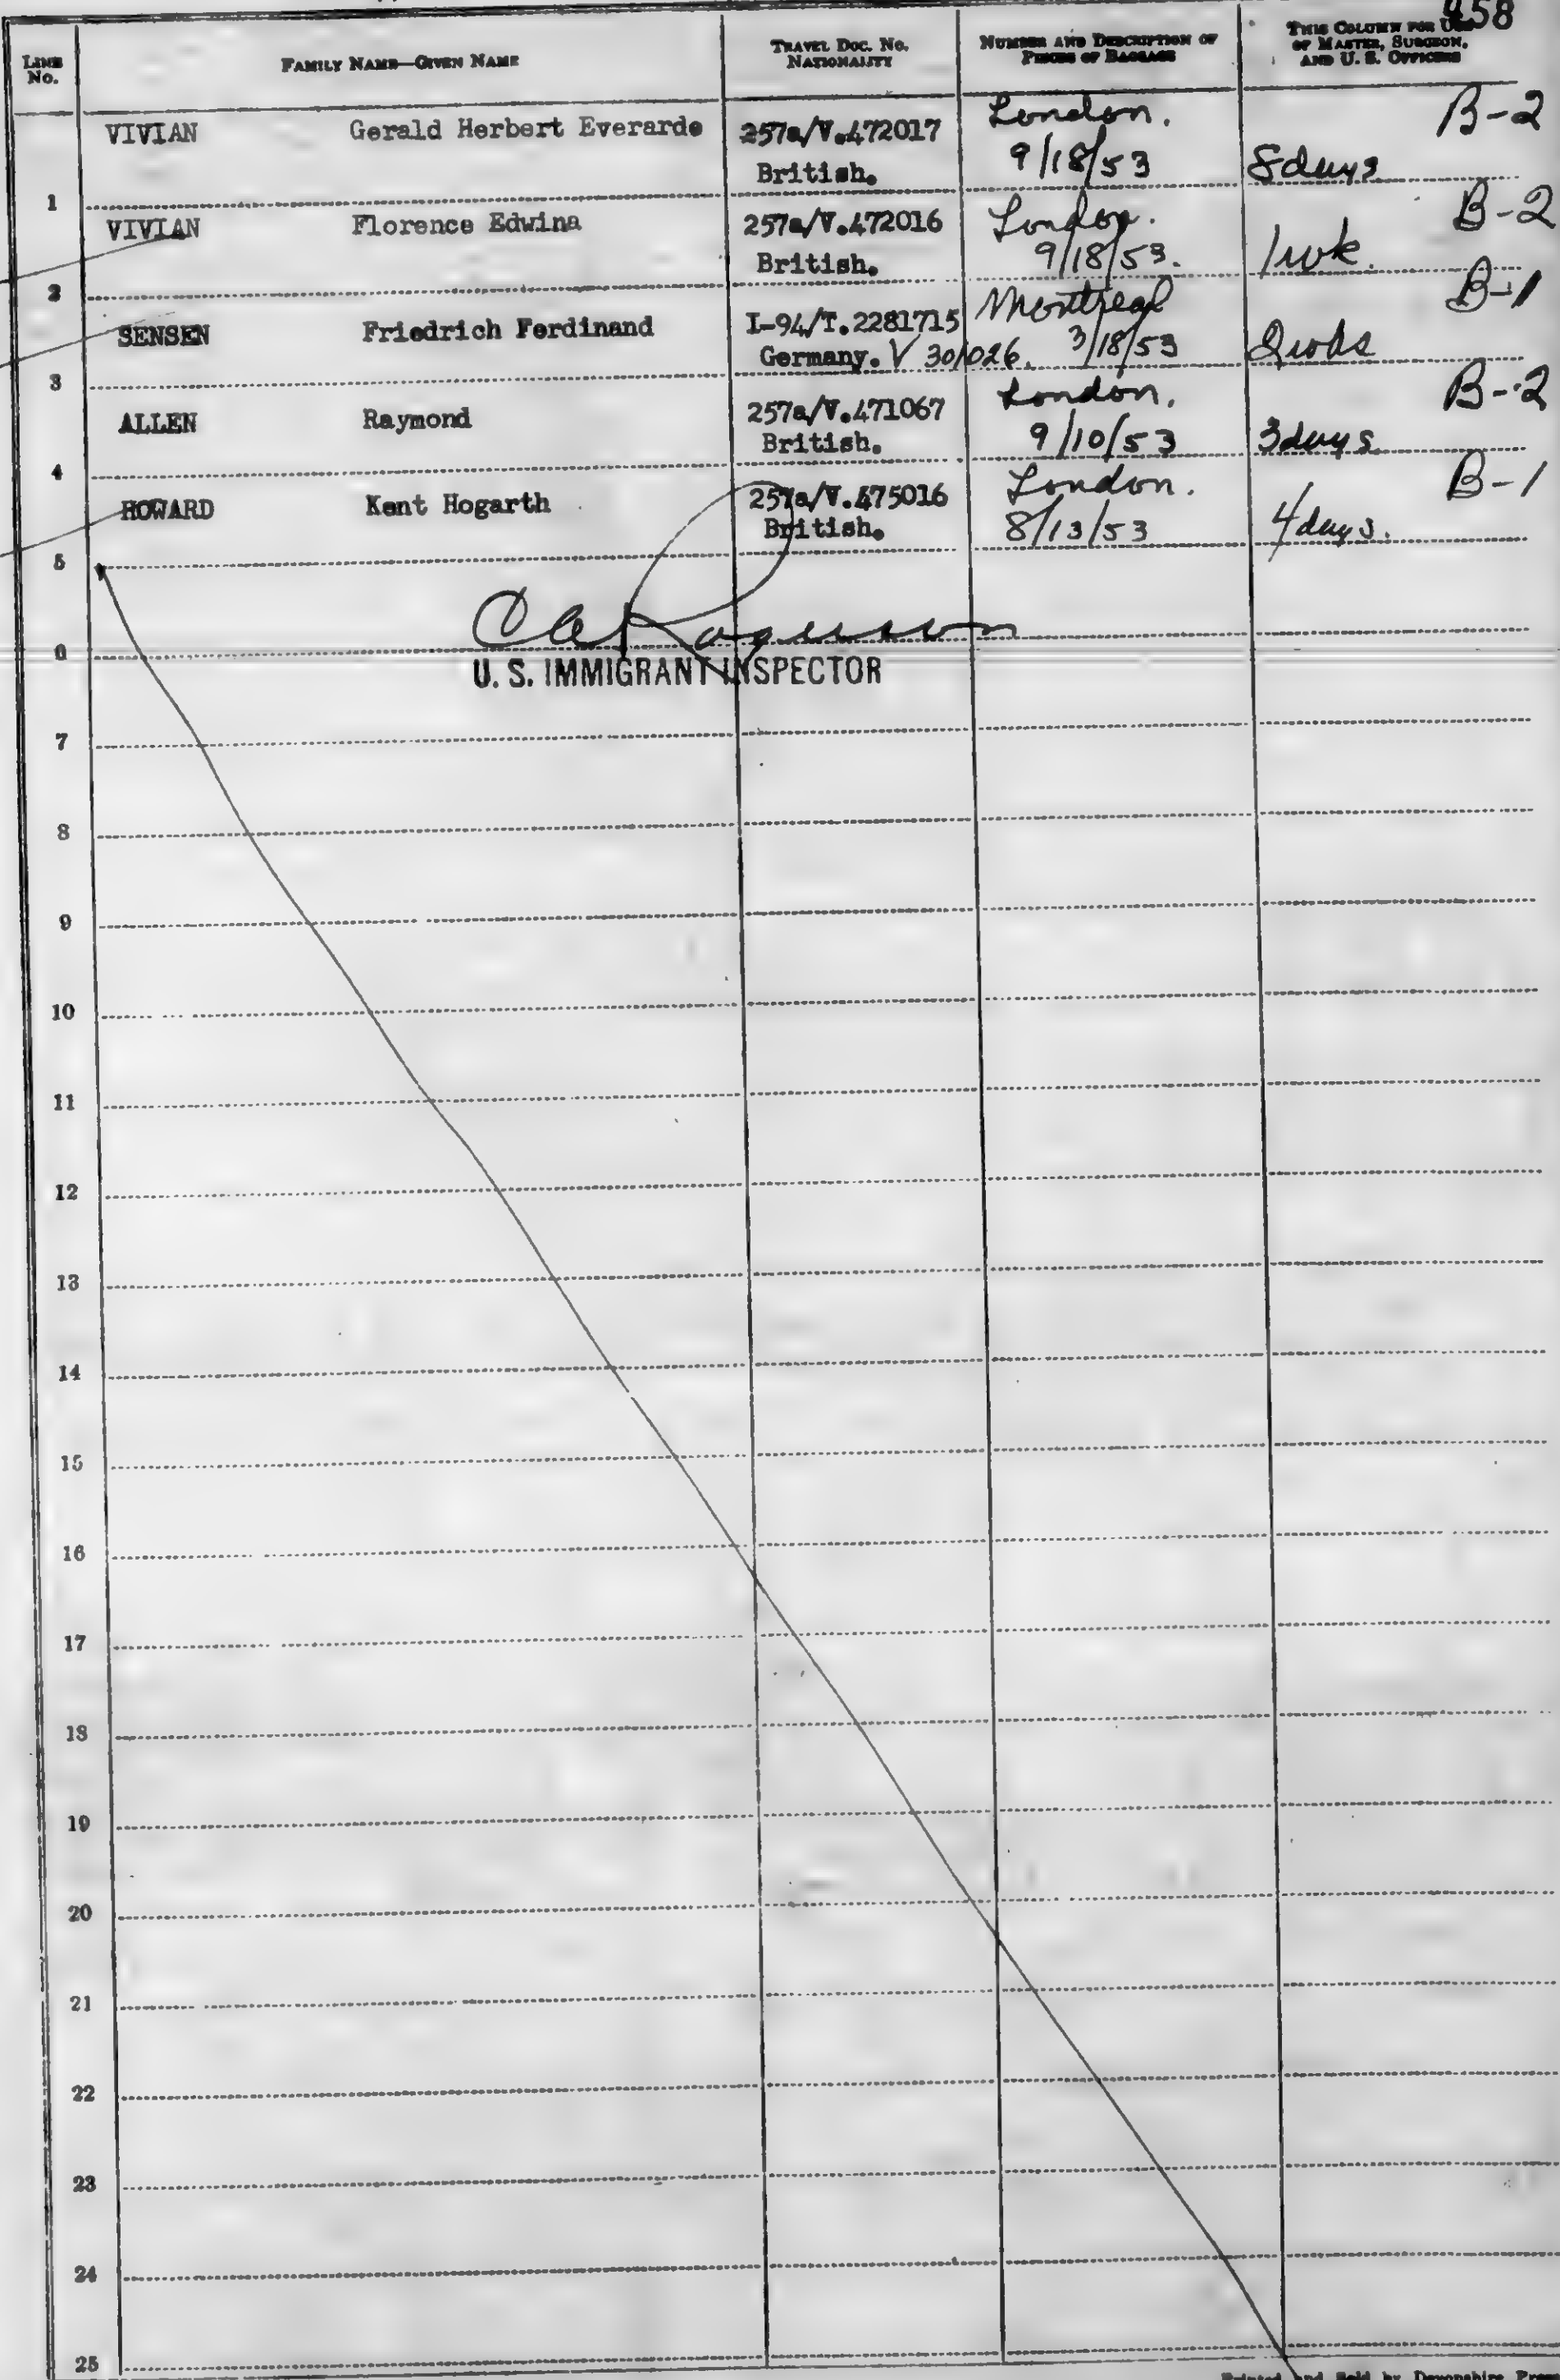 958
LINE No. FAMILY NAME—GIVEN NAME TRAVEL DOC. No. NATIONALITY NUMBER AND DESCRIPTION OF PIECES OF BAGGAGE THIS COLUMN FOR USE OF MASTER, SURGEON, AND U. S. OFFICERS
VIVIAN Gerald Herbert Everarde 257a/V.472017 London. B-2
British. 9/18/53 8days
1
VIVIAN Florence Edwina 257a/V.472016 London. B-2
British. 9/18/53. 1wk.
2
SENSEN Friedrich Ferdinand I-94/T.2281715 Montreal B-1
Germany. V 301026. 3/18/53
3
ALLEN Raymond 257a/V.471067 London. B-2
British. 9/10/53 3days
4
HOWARD Kent Hogarth 257a/V.475016 London. B-1
British. 8/13/53 4days.
5
6
U. S. IMMIGRANT INSPECTOR
7
8
9
10
11
12
13
14
15
16
17
18
19
20
21
22
23
24
25
Printed and Sold by Devonshire Press